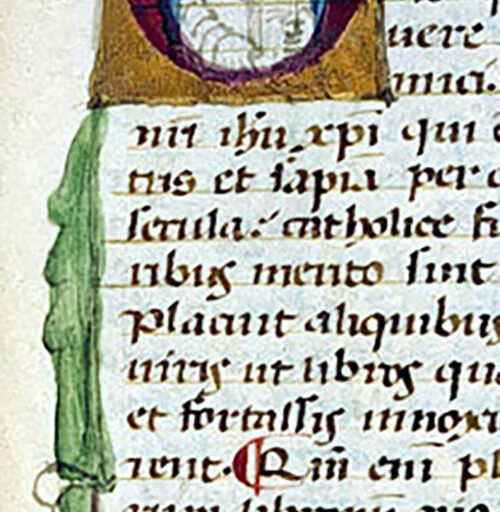 uere
mici.
nri ihu xpi qui
tris et sapia per
secula. catholice fi
ribus merito sint
placuit aliquibus
uiris ut libros qu
et fortassis innoxi
rent. Qm eni pl